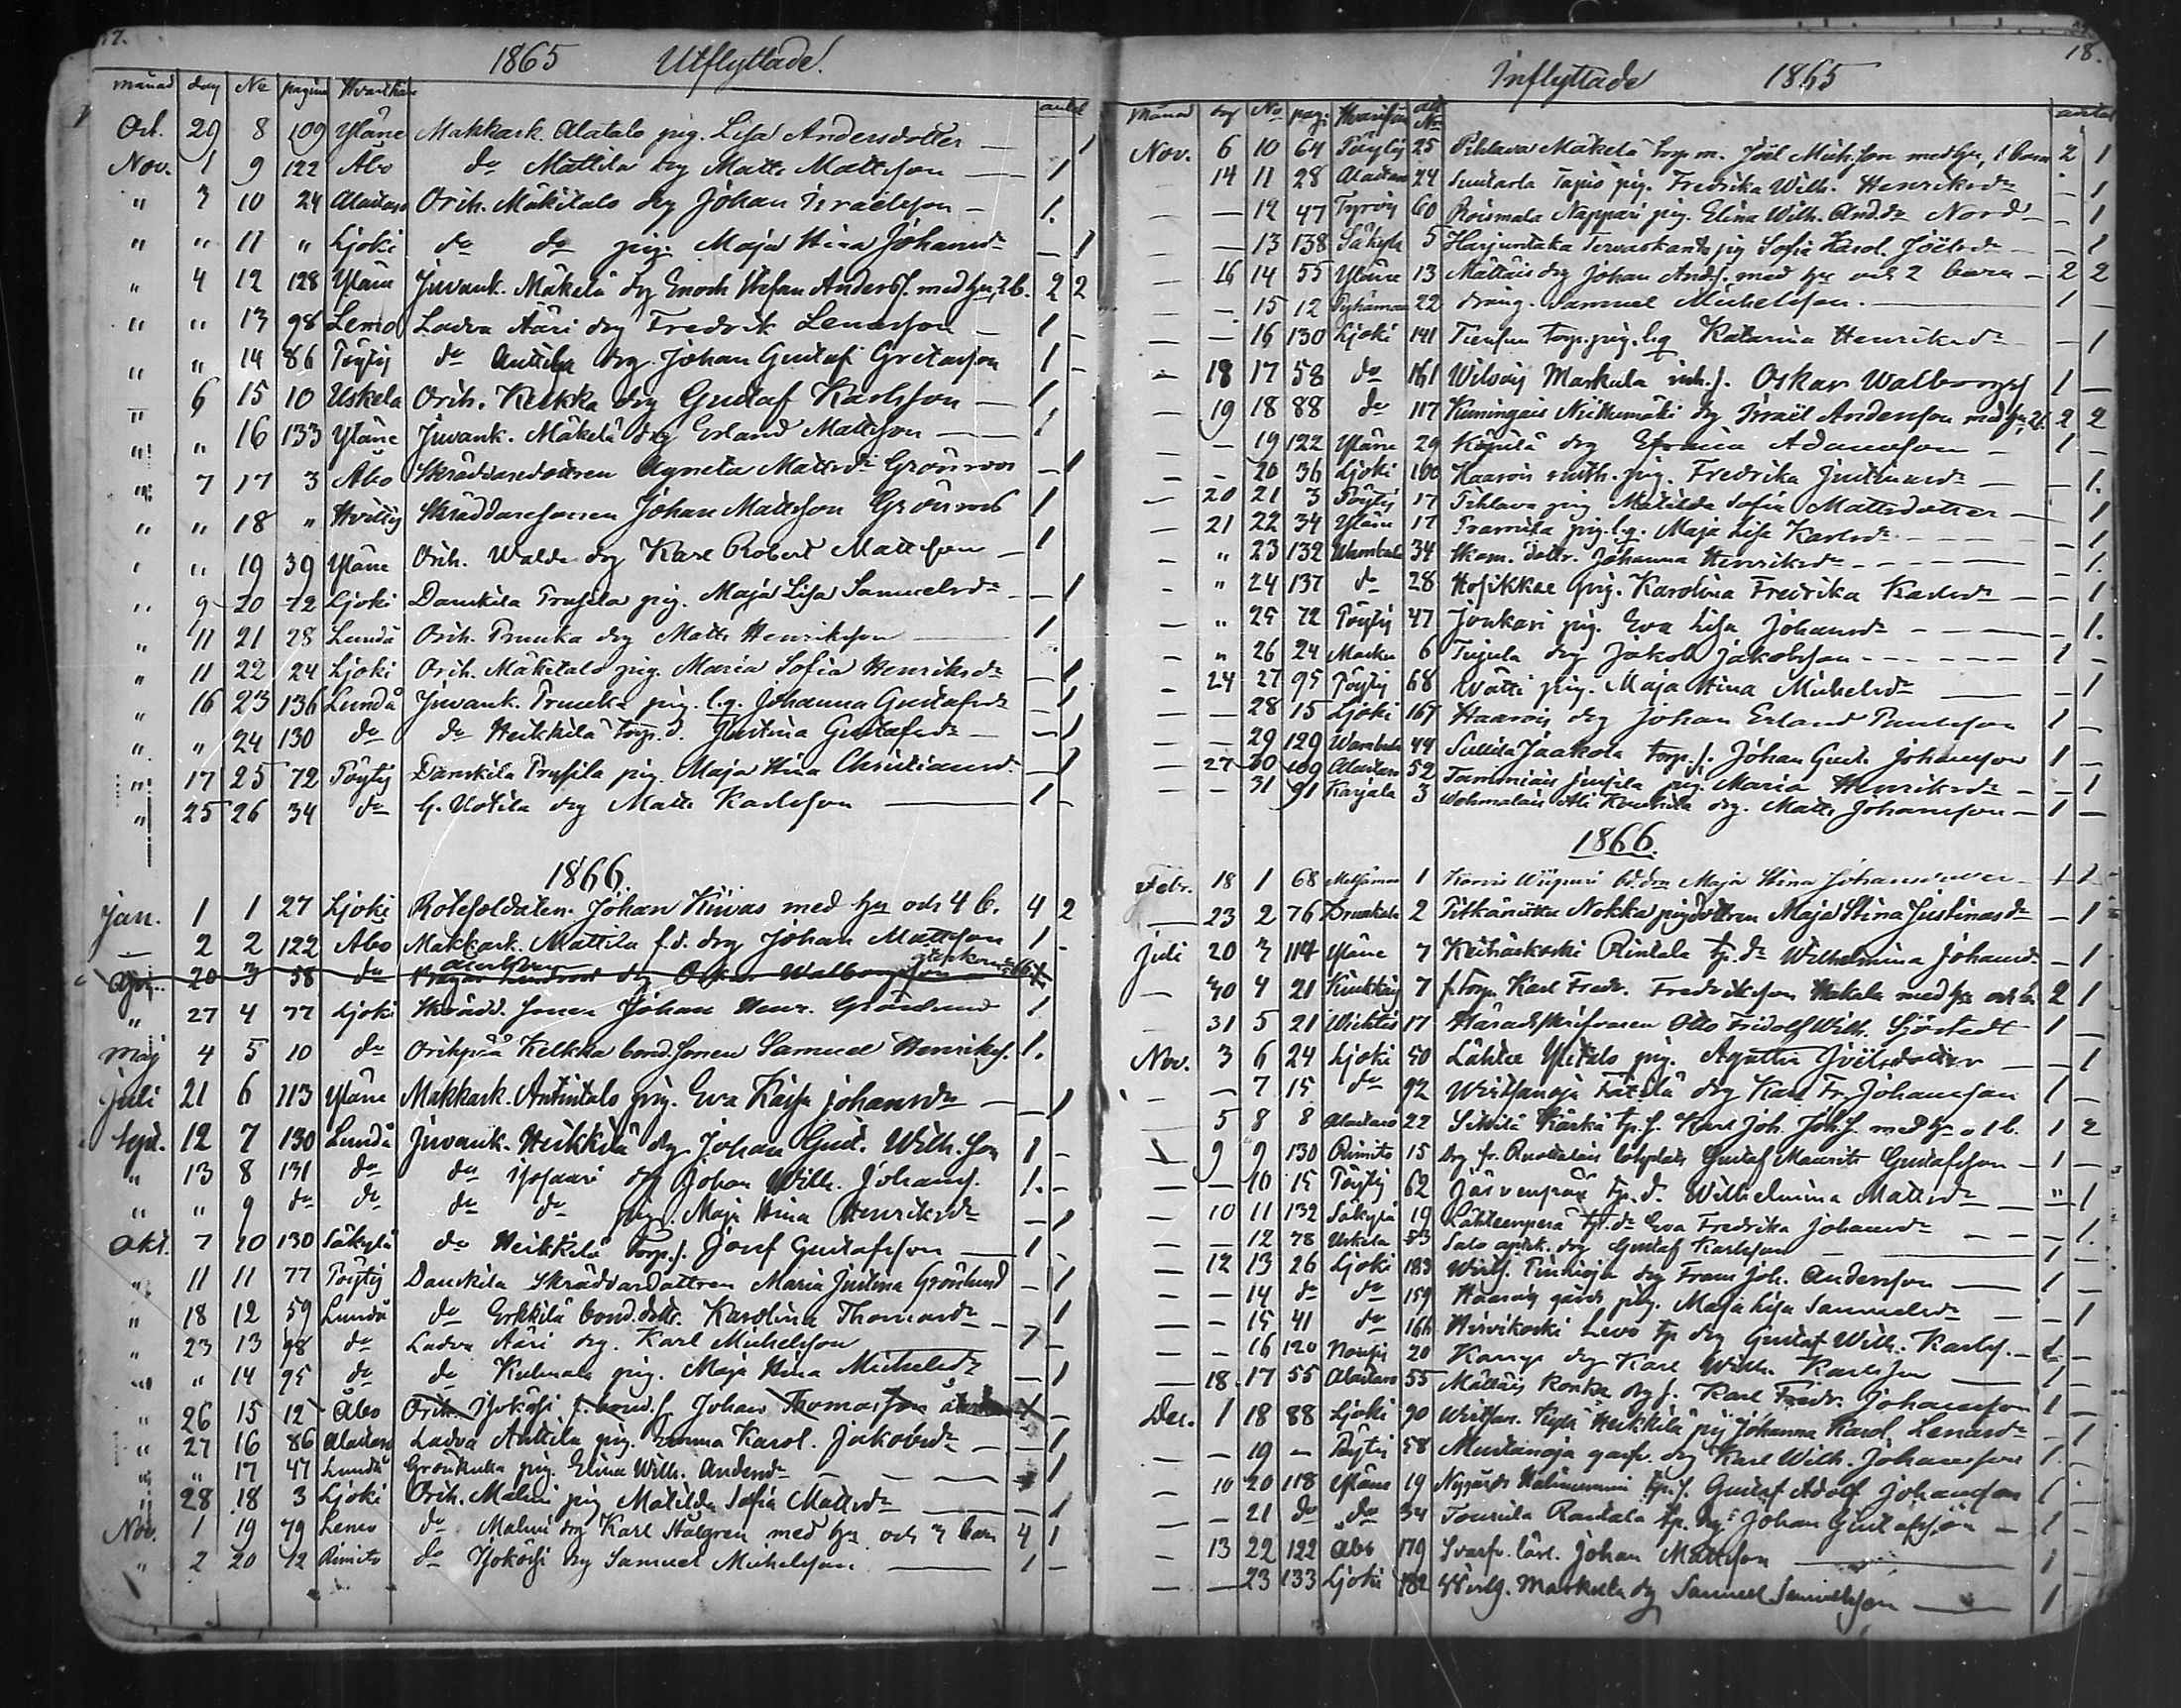 17.
1865 Utflyttade.
månad dag No pagina Hvarthän antal
Oct. 29 8 109 Yläne Makkark. Alatalo pig. Lisa Andersdotter — 1
Nov. 1 9 122 Åbo do Mattila drg Matts Mattsson — 1
" 3 10 24 Alastaro Orih. Mäkitalo drg Johan Israelsson — 1.
" " 11 " Ljoki do do pig. Maja Stina Johansdr — 1
" 4 12 128 Yläne Juvank. Mäkelä drg Enoch Stefan Anderss. med hu, 2 b. 2 2
" " 13 98 Lemo Ladva Ääri drg Fredrik Lenasson — 1 -
" " 14 86 Pöytis do Anttila drg. Johan Gustaf Gretasson 1 -
" 6 15 10 Uskela Orih. Kelkka drg Gustaf Karlsson — 1
" " 16 133 Yläne Juvank. Mäkelä drg Erland Mattsson — 1
" 7 17 3 Åbo Skräddaredottren Agneta Mattsdr Grönroos — 1
" " 18 " Hvittis Skräddaresonen Johan Mattsson Grönroos 1
" " 19 39 Yläne Orih. Walde drg Karl Robert Mattsson — 1
" 9 20 72 Ljoki Danskila Prusila pig. Maja Lisa Samuelsdr — 1
" 11 21 28 Lundå Orih. Prunka drg Matts Henriksson — 1
" 11 22 24 Ljoki Orih. Mäkitalo pig. Maria Sofia Henriksdr — 1
" 16 23 136 Lundå Juvank. Prunka pig. l.q. Johanna Gustafsdr — 1
" " 24 130 do do Heikkilä torp. d. Justina Gustafsdr — 1
" 17 25 72 Pöytis Danskila Prusila pig. Maja Stina Christiansd. — 1
" 25 26 34 do G. Uotila drg Matts Karlsson — 1 -
1866.
Jan. 1 1 27 Ljoki Rotesoldaten Johan Kiwas med hu och 4 b. 4 2
— 2 2 122 Åbo Makkark. Mattila f.d. drg Johan Mattsson 1 -
Apr. 20 3 58 do drg Oskar Walborgsson
" 27 4 77 Ljoki Skrädd. sonen Johan Henr. Grönlund 1
Maj 4 5 10 do Orihpää Kelkka bond. sonen Samuel Henrikss. 1.
Juli 21 6 113 Yläne Makkark. Antintalo pig. Eva Kaisa Johansdr — 1
Sept. 12 7 130 Lundå Juvank. Heikkilä drg. Johan Gust. Wilh. son 1 -
" 13 8 131 do do Isosaari drg Johan Wilh. Johanss. 1. -
" " 9 do do do do pig. Maja Stina Henriksdr — 1
Okt. 7 10 130 Säkylä do Heikkilä torp. s. Josef Gustafsson — 1 -
" 11 11 77 Pöytis Danskila Skräddardottren Maria Justina Grönlund — 1
" 18 12 59 Lundå do Erkkilä bond. dottr. Karolina Thomasdr — 1
" 23 13 98 do Ladva Ääri drg. Karl Michelsson 1 -
" " 14 95 do do Kulmala pig. Maja Stina Michelsdr — 1
" 26 15 12 Åbo Orih. Isokäsi f. bond. s. Johan Thomasson 1 -
" 27 16 86 Alastaro Ladva Anttila pig. Emma Karol. Jakobsdr — 1
" " 17 47 Lundå Grönkulla pig. Elina Wilh. Andersdr — 1
" 28 18 3 Ljoki Orih. Malmi pig Matilda Sofia Mattsdr — 1
Nov. 1 19 79 Lemo do Malmi drg Karl Stålgren med hu och 3 barn 4 1
" 2 20 12 Rimito do Isokäsi drg Samuel Michelsson — 1 -
18.
Inflyttade 1865
Månad dag No pag: Hvarifrån att. No antal
Nov. 6 10 64 Pöytis 25 Pihlava Mäkelä torp m. Joël Michsson med hu, 1 barn 2 1
— 14 11 28 Alastaro 24 Suntarla Tapio pig. Fredrika Wilh. Henriksdr — 1
— — 12 47 Tyrvis 60 Roismala Nappari pig. Elina Wilh. And.dr Nord — 1
— — 13 138 Säkylä 5 Harjuntaka Tervaskanto pig Sofia Karol. Joëlsdr — 1
— 16 14 55 Yläne 13 Mättäis drg Johan Ands. med hu och 2 barn — 2 2
— — 15 12 Pyhämaa 22 dräng. Samuel Michelsson. — 1 —
— — 16 130 Ljoki 141 torp. pig. l.q Katarina Henriksdr — 1
— 18 17 58 do 161 Wilsois Markula inh. s. Oskar Walborgss 1 —
— 19 18 88 do 117 Kuningais Niittumäki drg Israël Andersson med hu, 2 b. 2 2
— — 19 122 Yläne 29 Köpilä drg Efraim Adamsson — 1 -
— — 20 36 Ljoki 160 Haarois pig. Fredrika Justinasdr — 1.
— 20 21 3 Pöytis 17 Pihlava pig Matilda Sofia Mattsdotter — 1
— 21 22 34 Yläne 17 pig. l.q. Maja Lisa Karlsdr — 1
— " 23 132 Wambula 34 Skom. dottr. Johanna Henriksdr — 1.
— " 24 137 do 28 Hosikkae pig. Karolina Fredrika Karlsdr — 1
— " 25 72 Pöytis 47 Jonkari pig. Eva Lisa Johansdr — 1.
— " 26 24 Masku 6 Tujula drg Jakob Jakobsson — 1 -
— 24 27 95 Pöytis 68 Wätti pig. Maja Stina Michelsdr — 1
— — 28 15 Ljoki 167 Haarois drg Johan Erland Paulsson 1 -
— — 29 129 Wambula 44 Sallila Jaakola torp. s. Johan Gust. Johansson 1 -
— 27 30 109 Alastaro 52 Tammiais Jussila pig. Maria Henriksdr — 1
— — 31 91 Karjala 3 drg. Matts Johansson — 1 —
1866.
Febr. 18 1 68 1 bd. dr Maja Stina Johansdotter — 1
— 23 2 76 2 Nokka pigdottren Maja Stina Justinasdr — 1
Juli 20 3 114 Yläne 7 Keihäskoski Rintala tp. dr Wilhelmina Johansdr — 1
— 30 4 21 7 f. torp. Karl Fredr. Fredriksson Hakala med hu och 2 1
— 31 5 21 Wichtis 17 Häradsskrifvaren Otto Fridolf Wilh. Sjöstedt 1 —
Nov. 3 6 24 Ljoki 50 Lähtee Ylitalo pig. Agatha Joëlsdotter — 1
— — 7 15 do 92 Wirttanoja Fätilä drg Karl Fr. Johansson 1 —
— 5 8 8 Alastaro 22 Sikilä Kärki tp. s. Karl Joh. Joh.s. med hu o 1 b. 1 2
— 9 9 130 Rimito 15 drg fr. Gustaf Maurits Gustafsson — 1 —
— — 10 15 Pöytis 62 Järvenpää tp. d. Wilhelmina Mattsdr — " 1
— 10 11 132 Säkylä 19 Lähteenperä tp. dr Eva Fredrika Johansdr — 1.
— — 12 78 Uskela 53 Salo apotek. drg Gustaf Karlsson — 1 —
— 12 13 26 Ljoki 183 Wirtts. drg Frans Joh. Andersson — 1 —
— — 14 do do 159 Haarois gårds pig. Maja Lisa Samuelsdr — 1
— — 15 41 do 166 Hirvikoski Levo tp drg Gustaf Wilh. Karlss. — 1 —
— — 16 120 Nousis 20 drg Karl Wilh. Karlsson — 1 —
— 18 17 55 Alastaro 55 Mältäis drg s. Karl Fredr. Johansson 1 —
Dec. 1 18 88 Ljoki 90 Heikkilä pig Johanna Karol. Lenasdr — 1
— — 19 — Pöytis 58 Mustanoja drg Karl Wilh. Johansson 1 -
— 10 20 118 Yläne 19 Nygårds tp. s. Gustaf Adolf Johansson 1 -
— — 21 do do 34 Tourula Rantala tp. drg Johan Gustafsson — 1 -
— 13 22 122 Åbo 179 Svarfv. lärl. Johan Mattsson — 1
— — 23 133 Ljoki 182 Markula drg Samuel Samuelsson — 1